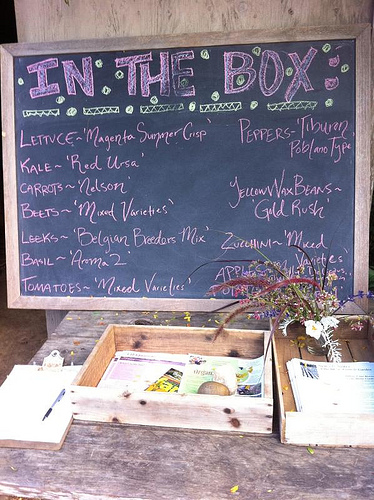 IN THE BOX:
LETTUCE~'Magenta Summer Crisp'
KALE~'Red Ursa'
CARROTS~'Nelson'
BEETS~'Mixed Varieties'
LEEKS~'Belgian Breeders Mix'
BASIL~'Aroma 2'
TOMATOES~'Mixed Varieties'
PEPPERS~'Tiburon
Poblano Type'
YELLOW WAX BEANS~
'Gold Rush'
ZUCCHINI~'Mixed
Varieties'